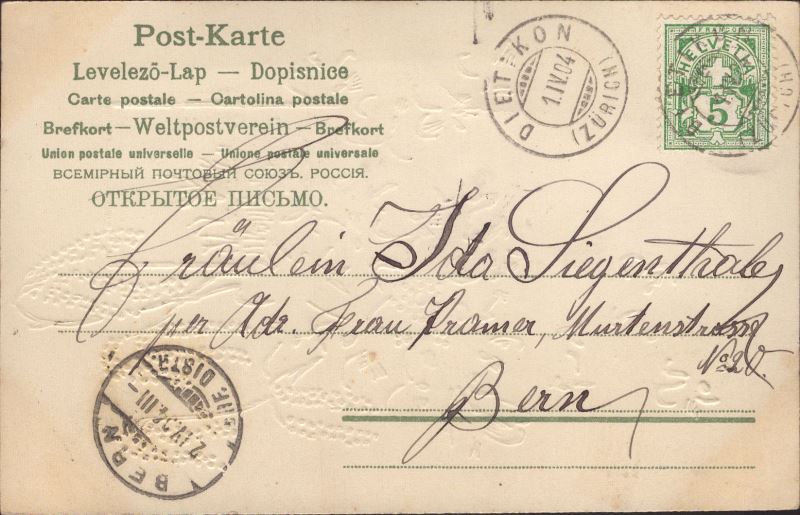 Post-Karte
Levelezö-Lap — Dopisnice
Carte postale — Cartolina postale
Brefkort — Weltpostverein — Brefkort
Union postale universelle — Unione postale universale
ВСЕМІРНЫЙ ПОЧТОВЫЙ СОЮЗЪ. РОССІЯ.
ОТКРЫТОЕ ПИСЬМО.
DIETIKON
1.IV.04
(ZÜRICH)
HELVETIA
5
Fräulein Ida Siegenthaler
per Adr. Frau Kramer, Murtenstrasse
No 20.
Bern
BERN
2.IV.04. III